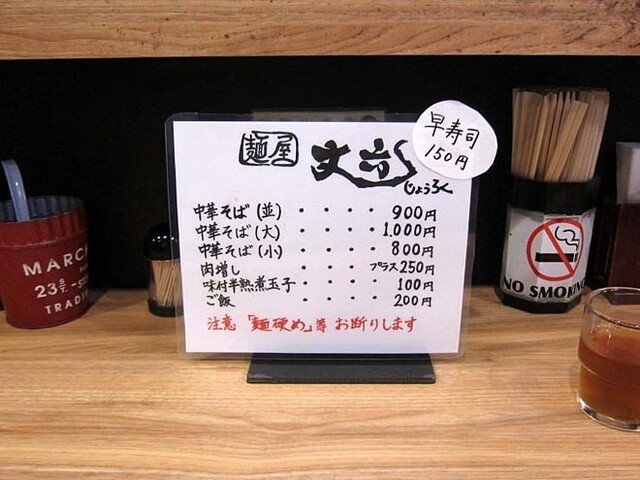 早寿司
150円
麺屋 丈六
じょうろく
中華そば(並)・・・・900円
中華そば(大)・・・・1,000円
中華そば(小)・・・・800円
肉増し・・・プラス250円
味付半熟煮玉子・・・100円
ご飯・・・・200円
注意「麺硬め」等 お断りします
MARC
23
TRAD
NO SMOKING